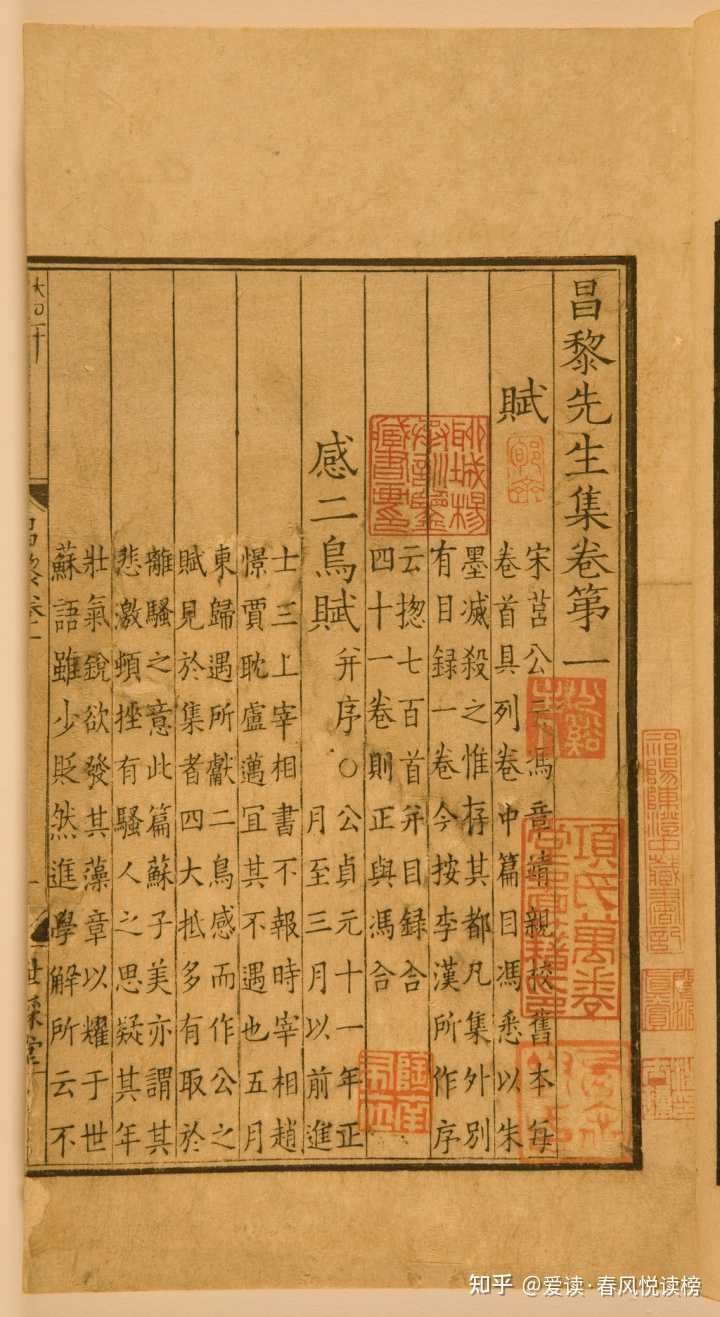 昌黎先生集卷第一
賦
宋莒公云馮章靖親校舊本每
卷首具列卷中篇目馮悉以朱
墨滅殺之惟存其都凡集外別
有目録一卷今按李漢所作序
云揔七百首并目録合
四十一卷則正與馮合
感二鳥賦
并序○公貞元十一年正
月至三月以前進
士三上宰相書不報時宰相趙
憬賈耽盧邁宜其不遇也五月
東歸遇所獻二鳥感而作公之
賦見於集者四大抵多有取於
離騷之意此篇蘇子美亦謂其
悲激頓挫有騷人之思疑其年
壯氣銳欲發其藻章以耀于世
蘇語雖少貶然進學解所云不
項氏萬卷堂圖籍印
祁陽陳澄中藏書記
世綵堂
知乎 @爱读·春风悦读榜